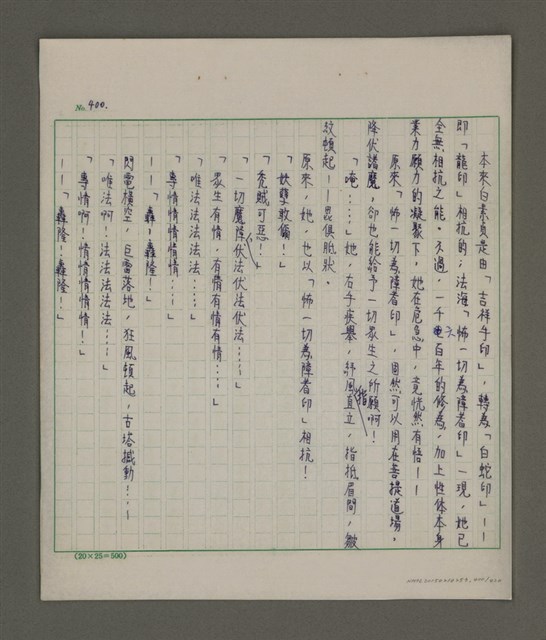 No. 400.
本來白素貞是由「吉祥手印」，轉為「白蛇印」——
即「龍印」相抗的；法海「怖一切為障者印」一現，她已
全無相抗之能。不過，一千六百年的修為，加上性体本身
業力願力的凝聚下，她在危急中，竟恍然有悟——
原來「怖一切為障者印」，固然可以用在菩提道場，
降伏諸魔，卻也能給予一切眾生之所願啊！
「唵……」她，右手疾舉，紓風指直立，指抵眉間，皺
紋頓起——畏俱胝狀。
原來，她，也以「怖一切為障者印」相抗！
「妖孽敢爾！」
「禿賊可惡！」
「一切魔障伏法伏法伏法……」
「眾生有情，有情有情有情……」
「唯法法法法法……」
「專情情情情情……」
——「轟！轟隆！」
閃電橫空，巨雷落地，狂風頓起，古塔撼動……
「唯法啊！法法法法……」
「專情啊！情情情情情！」
——「轟隆！轟隆！」
(20×25=500)